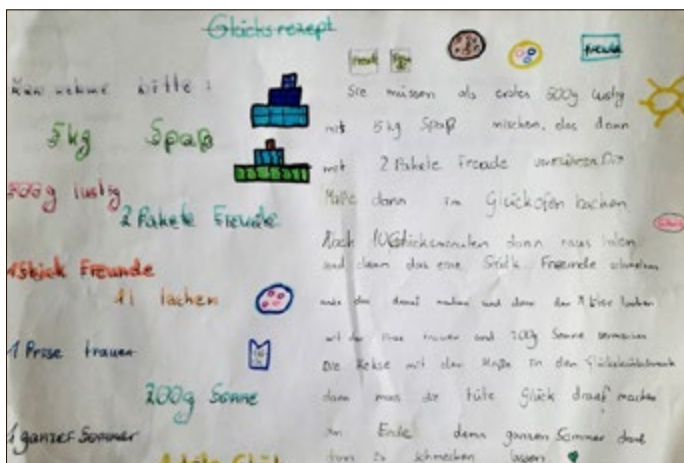 Glücksrezept
Man nehme bitte:
5kg Spaß
500g lustig
2 Pakete Freude
1 Stück Freunde
1l lachen
1 Prise trauer
200g Sonne
1 ganzer Sommer
Freude
Sie müssen als erstes 500g lustig
mit 5kg Spaß mischen, das dann
mit 2 Pakete Freude verrühren. Die
Maße dann im Glückofen backen
Nach 10 Glücksminuten dann raus holen
und dann das eine Stück Freunde schmelzen
und dann den 1 lachen
mit der Prise trauer und 200g Sonne vermischen
Die Kekse mit der Maße in den
dann muss die tüte Glück drauf machen
Am Ende denn ganzen Sommer drauf
dann schmecken lassen